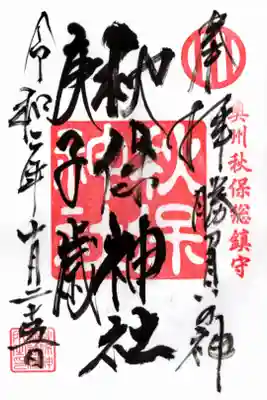 奥州秋保総鎮守
奉拝
勝負の神
秋保神社
庚子歳
令和二年十月二十五日